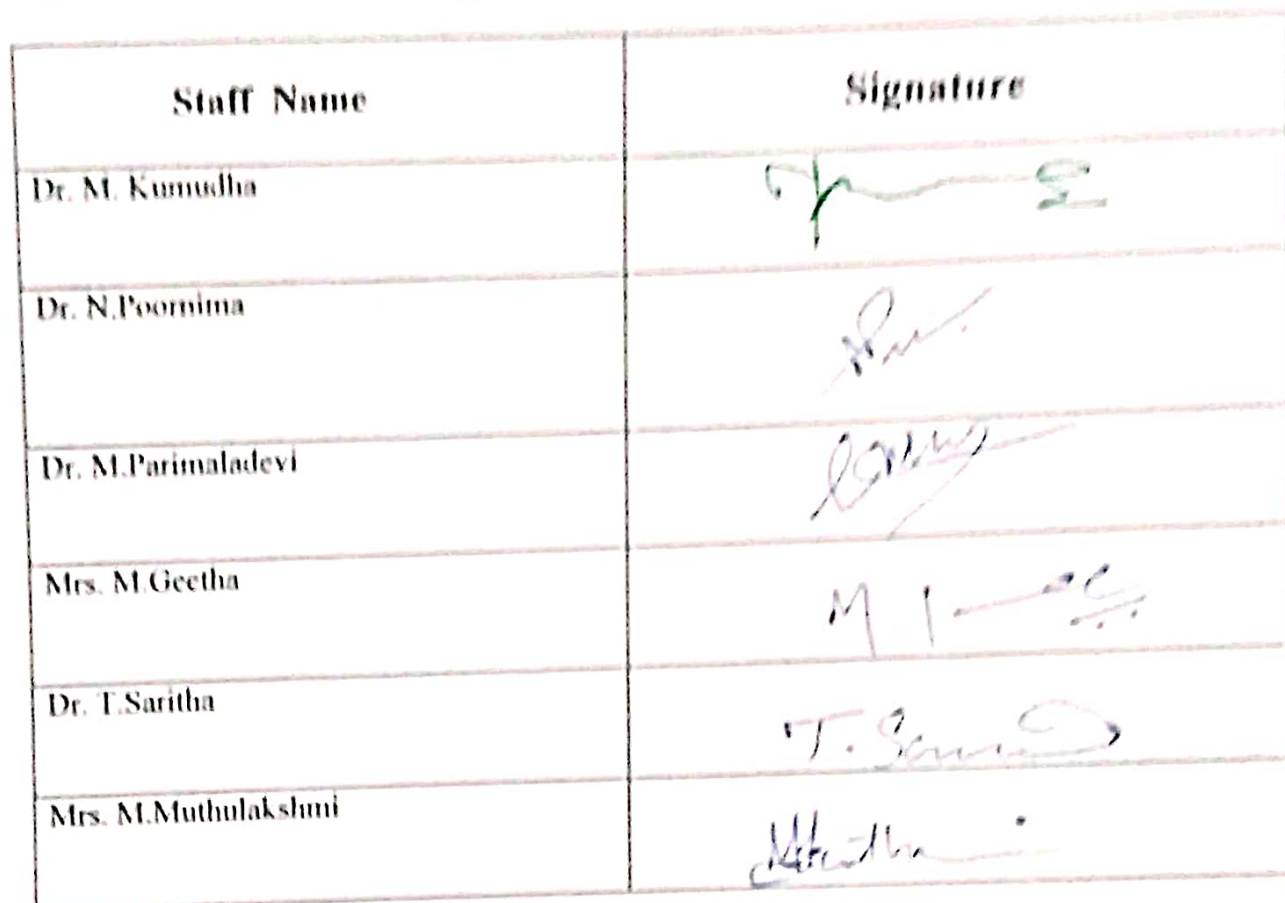 Staff Name Signature
Dr. M. Kumudha
Dr. N.Poornima
Dr. M.Parimaladevi
Mrs. M.Geetha
Dr. T.Saritha
T.
Mrs. M.Muthulakshmi